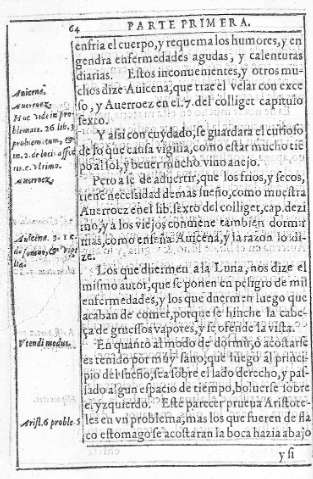 64
PARTE PRIMERA.
enfria el cuerpo, y requema los humores, y en
gendra enfermedades agudas, y calenturas
diarias. Estos inconuenientes, y otros mu-
chos dize Auicena, que trae el velar con exce
so, y Auerroez en el.7.del colliget capitulo
sexto.
Y assi con cuydado, se guardara el curioso
de lo que causa vigilia, como estar mucho tié
po al sol, y beuer mucho vino anejo.
Pero a se de aduertir, que los frios, y secos,
tiene necesidad de mas sueño, como muestra
Auerroez en el lib.sexto del colliget, cap.dezi
mo, y a los viejos conuiene tambien dormir
mas, como enseña Auicena, y la razon lo di-
ze.
Los que duermen a la Luna, nos dize el
mismo autor, que se ponen en peligro de mil
enfermedades, y los que duermen luego que
acaban de comer, porque se hinche la cabe-
ça de gruessos vapores, y se ofende la vista.
En quanto al modo de dormir, o acostarse
es tenido por muy sano, que luego al princi-
pio del sueño, sea sobre el lado derecho, y pas-
sado algun espacio de tiempo, boluerse sobre
el yzquierdo. Este parecer prueua Aristote-
les en vn problema, mas los que fueren de fla
co estomago se acostaran la boca hazia abajo
y si
Auicena.
Auerroez.
Auerroez.
Auicena.
Vtendi modus.
Arist.6 proble.5